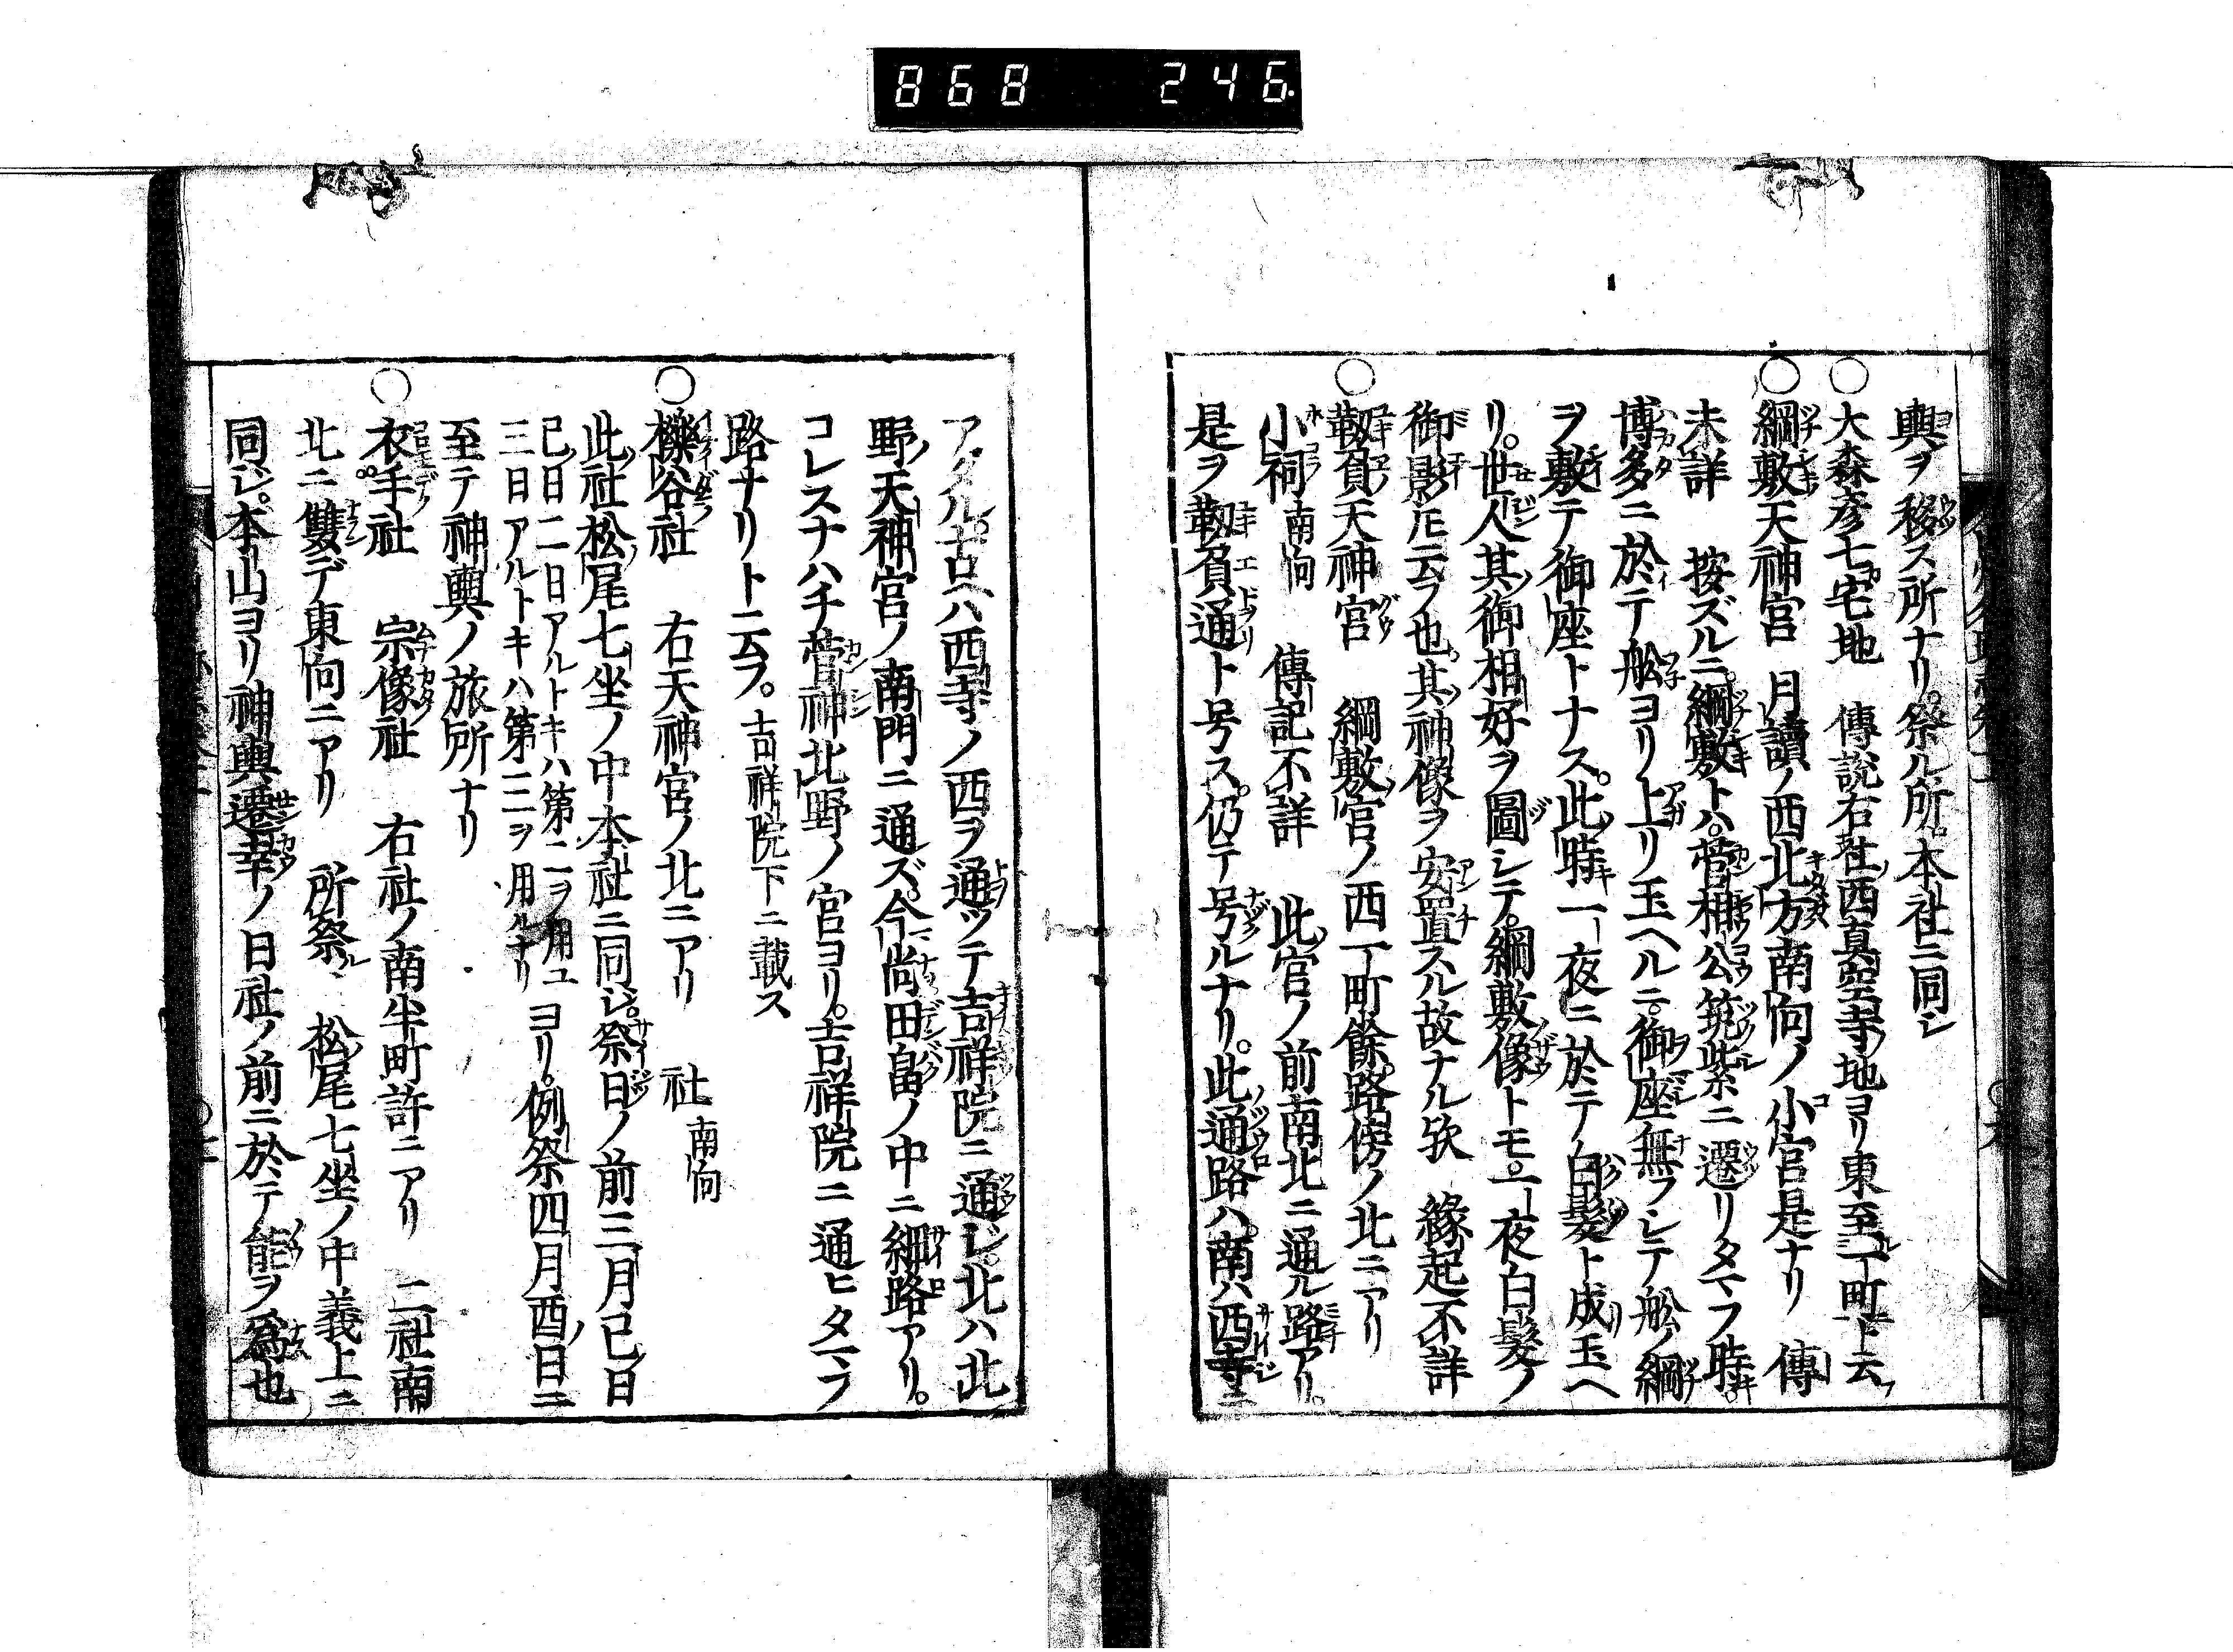 868 246.
輿ヲ移ス所ナリ。祭ル所。本社ニ同シ
○大森彦七宅地 傳説右社西真空寺地ヨリ東至一町ト云フ
○綱敷天神宮 月讀ノ西北方南向ノ小宮是ナリ 傳
未詳 按ズルニ。綱敷トハ。菅相公筑紫ニ遷リタマフ時。
博多ニ於テ舩ヨリ上リ玉ヘルニ。御座無フシテ舩ノ綱
ヲ敷テ御座トナス。此時一夜ニ於テ白髪ト成玉ヘ
リ。世人其御相好ヲ圖シテ。綱敷像トモ。一夜白髪ノ
御影𪜈云フ也。其神像ヲ安置スル故ナル欤 縁起不詳
○靱負天神宮 綱敷宮ノ西一町餘。路傍ノ北ニアリ
小祠南向 傳記不詳 此宮ノ前南北ニ通ル路アリ。
是ヲ靱負通ト号ス。仍テ号ルナリ。此通路ハ。南ハ西寺ニ
アタル。古ヘハ西寺ノ西ヲ通ッテ吉祥院ニ通ジ。北ハ北
野天神宮ノ南門ニ通ズ。今尚田畠ノ中ニ細路アリ。
コレスナハチ菅神北野ノ宮ヨリ。吉祥院ニ通ヒタマフ
路ナリト云フ。吉祥院下ニ載ス
○櫟谷社 右天神宮ノ北ニアリ 社南向
此社松尾七坐ノ中本社ニ同ジ。祭日ノ前三月已日
已日二日アルトキハ第二ヲ用ユ
三日アルトキハ第二ヲ用ルナリ
ヨリ。例祭四月酉ノ日ニ
至テ神輿ノ旅所ナリ
○衣手社 宗像社 右社ノ南半町許ニアリ 二社南
北ニ雙デ東向ニアリ 所祭ル 松尾七坐ノ中義上ニ
同ジ。本山ヨリ神輿遷幸ノ日社ノ前ニ於テ能ヲ為也